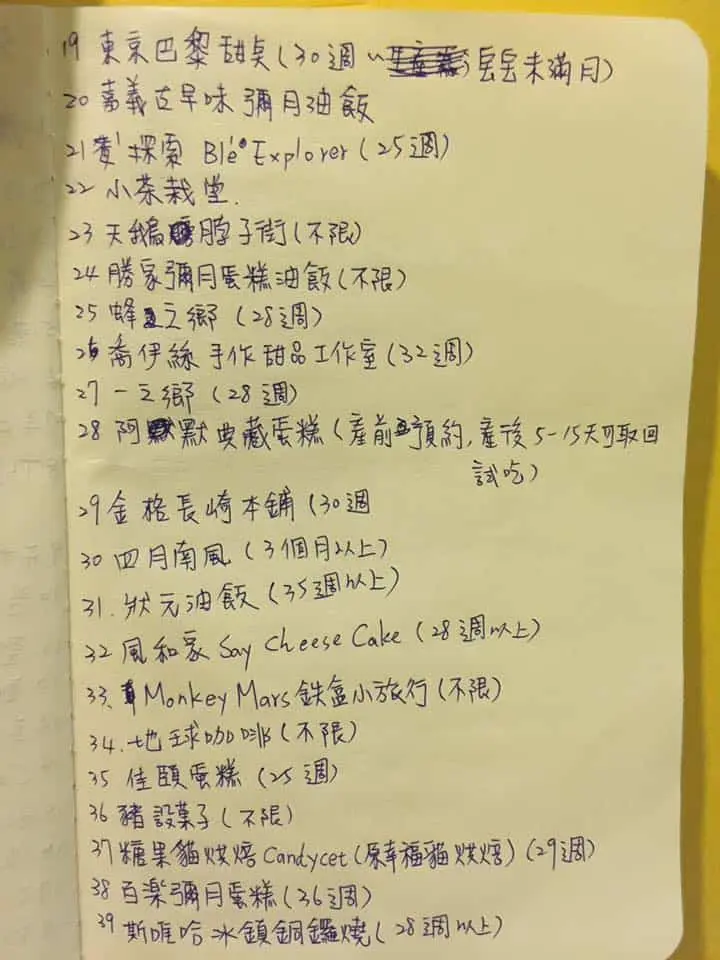 19 東京巴黎甜点(30週~寶寶未滿月)
20 嘉義古早味彌月油飯
21 探索 Blé Explorer(25週)
22 小茶栽堂.
23 天鵝脖子街(不限)
24 勝家彌月蛋糕油飯(不限)
25 蜂之鄉(28週)
26 喬伊絲手作甜品工作室(32週)
27 一之鄉(28週)
28 阿默典藏蛋糕(產前預約,產後5-15天可取回
試吃)
29 金格長崎本舖(30週
30 四月南風(3個月以上)
31. 狀元油飯(35週以上)
32 風和家 Say Cheese Cake(28週以上)
33. Monkey Mars 鉄盒小旅行(不限)
34. 地球咖啡(不限)
35 佳頤蛋糕(25週)
36 豬設菓子(不限)
37 糖果貓烘焙 Candycet(原幸福貓烘焙)(29週)
38 百楽彌月蛋糕(36週)
39 斯唯哈冰鎮銅鑼燒(28週以上)